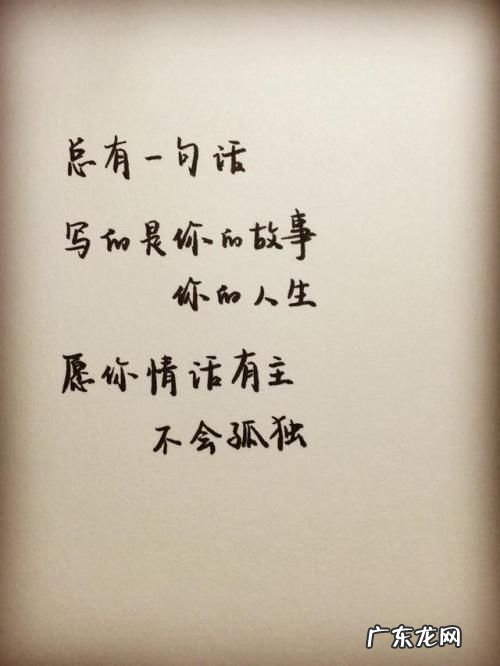 总有一句话
写的是你的故事
你的人生
愿你情话有主
不会孤独
广东龙网